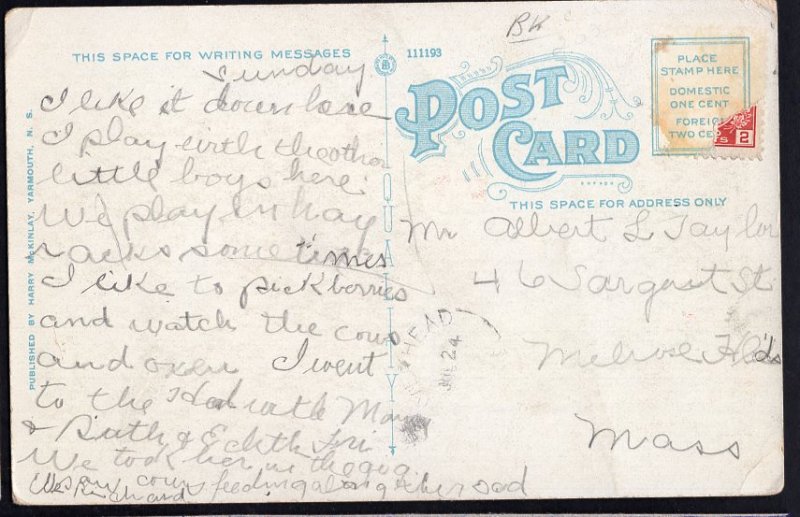 BK
THIS SPACE FOR WRITING MESSAGES
111193
Sunday
I like it down here
I play with the other
little boys here.
We play in hay
racks sometimes
I like to pick berries
and watch the cows
and oxen I went
to the with Mama
& Ruth & Edith Fri
We took her in the
We cows feeding along the road
Richard
PUBLISHED BY HARRY McKINLAY, YARMOUTH, N. S.
QUALITY
POST CARD
THIS SPACE FOR ADDRESS ONLY
PLACE
STAMP HERE
DOMESTIC
ONE CENT
FOREIGN
TWO CE
TS 2
HEAD
24
Mr Albert L Taylor
46 Sargent St
Melrose H'lds
Mass